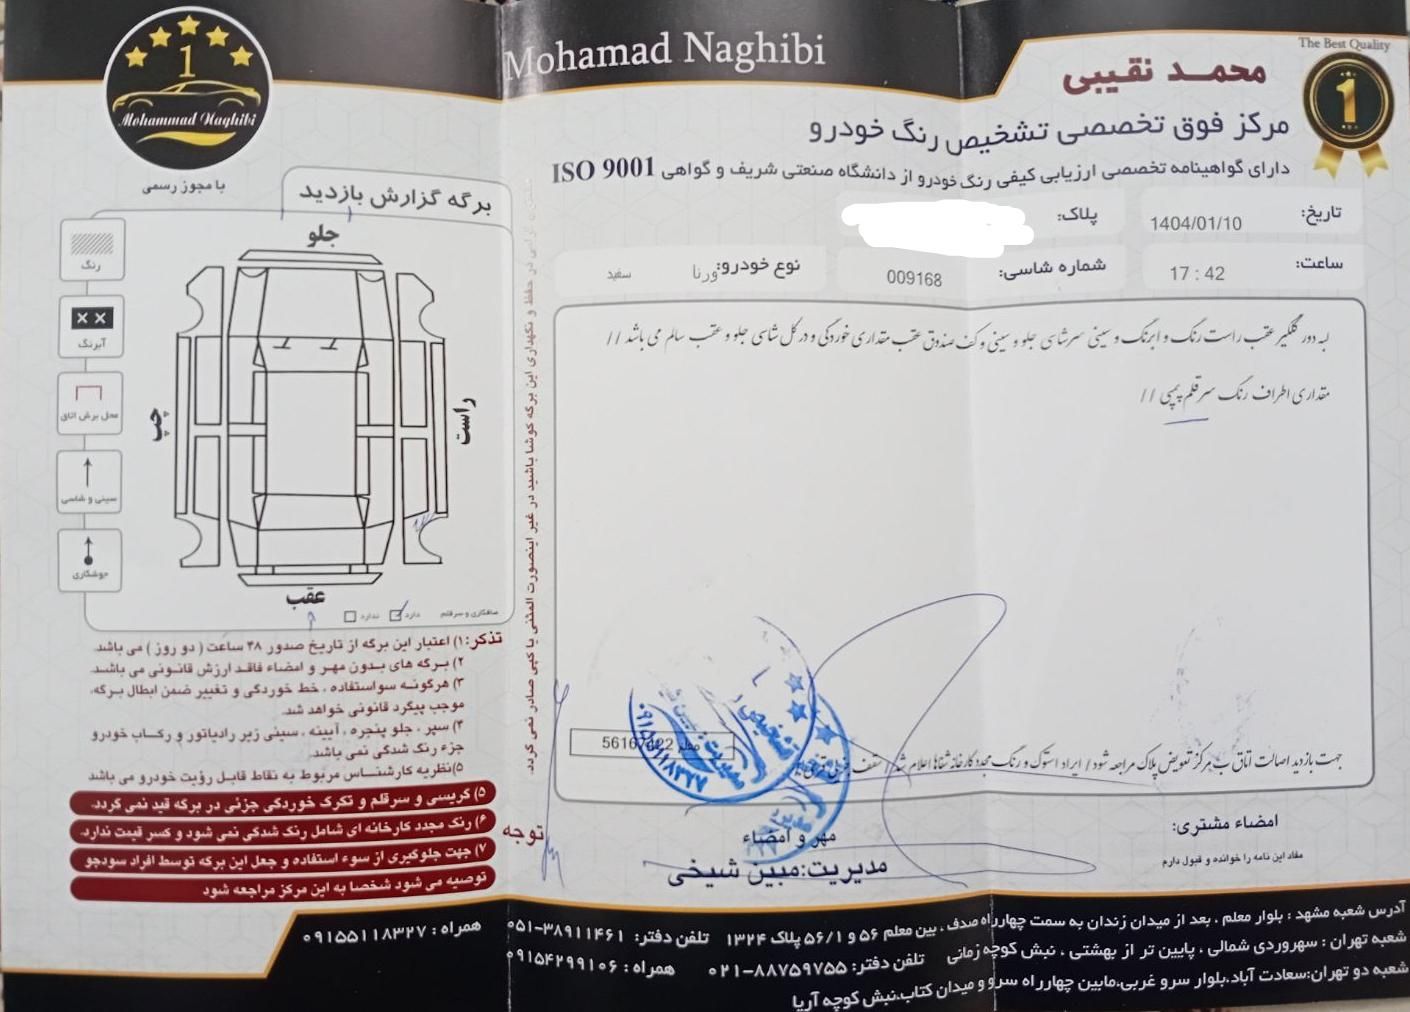 1
Mohammad Naghibi
با مجوز رسمی
Mohamad Naghibi
The Best Quality
1
محمد نقیبی
مرکز فوق تخصصی تشخیص رنگ خودرو
دارای گواهینامه تخصصی ارزیابی کیفی رنگ خودرو از دانشگاه صنعتی شریف و گواهی ISO 9001
تاریخ: 1404/01/10
پلاک:
ساعت: 17 : 42
شماره شاسی: 009168
نوع خودرو: ورنا سفید
لبه دور گلگیر عقب راست رنگ و ابرنگ و سینی سرشاسی جلو و سینی و کف صندوق عقب مقداری خوردگی و در کل شاسی جلو و عقب سالم می باشد //
مقداری اطراف رنگ سرقلم پمپی //
جهت بازدید اصالت اتاق به مرکز تعویض پلاک مراجعه شود / ایراد استوک و رنگ مجدد کارخانه شفاها اعلام شد / سقف
56167422
امضاء مشتری:
مفاد این نامه را خوانده و قبول دارم
مهر و امضاء
مدیریت: مبین شیخی
برگه گزارش بازدید
جلو
راست
چپ
عقب
رنگ
آبرنگ
محل برش اتاق
سینی و شاسی
جوشکاری
صافکاری و سرقلم دارد ندارد
تذکر: ۱) اعتبار این برگه از تاریخ صدور ۴۸ ساعت ( دو روز ) می باشد.
۲) برگه های بدون مهر و امضاء فاقد ارزش قانونی می باشد.
۳) هرگونه سواستفاده ، خط خوردگی و تغییر ضمن ابطال برگه،
موجب پیگرد قانونی خواهد شد.
۴) سپر ، جلو پنجره ، آیینه ، سینی زیر رادیاتور و رکاب خودرو
جزء رنگ شدگی نمی باشد.
۵) نظریه کارشناس مربوط به نقاط قابل رؤیت خودرو می باشد
توجه
۵) گریسی و سرقلم و تکرک خوردگی جزئی در برگه قید نمی گردد.
۶) رنگ مجدد کارخانه ای شامل رنگ شدگی نمی شود و کسر قیمت ندارد.
۷) جهت جلوگیری از سوء استفاده و جعل این برگه توسط افراد سودجو
توصیه می شود شخصا به این مرکز مراجعه شود
در حفظ و نگهداری این برگه کوشا باشید در غیر اینصورت المثنی یا کپی صادر نمی گردد.
آدرس شعبه مشهد : بلوار معلم ، بعد از میدان زندان به سمت چهارراه صدف ، بین معلم ۵۶ و ۵۶/۱ پلاک ۱۳۲۴ تلفن دفتر: ۰۵۱-۳۸۹۱۱۴۶۱ همراه : ۰۹۱۵۵۱۱۸۳۲۷
شعبه تهران : سهروردی شمالی ، پایین تر از بهشتی ، نبش کوچه زمانی تلفن دفتر: ۰۲۱-۸۸۷۵۹۷۵۵ همراه : ۰۹۱۵۴۲۹۹۱۰۶
شعبه دو تهران:سعادت آباد،بلوار سرو غربی،مابین چهارراه سرو و میدان کتاب،نبش کوچه آریا